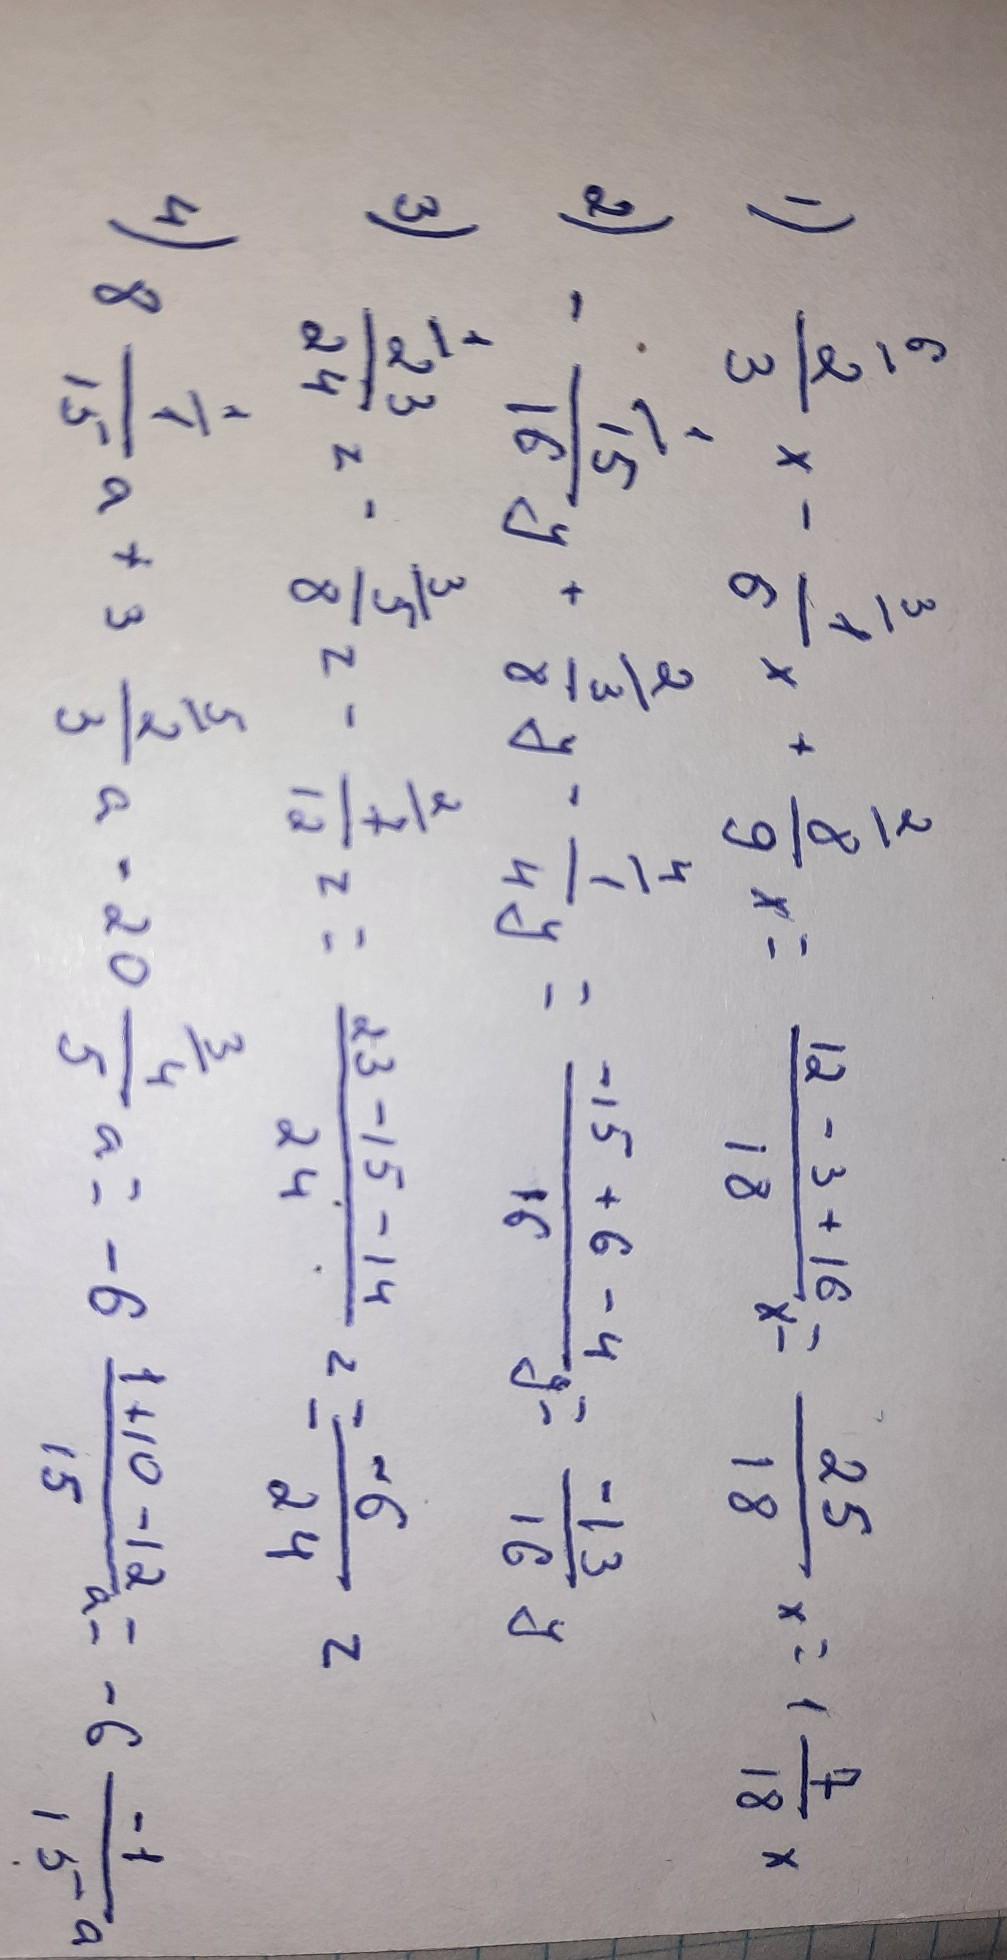 6 3 2
1) 2/3 x - 1/6 x + 8/9 x = (12 - 3 + 16)/18 x = 25/18 x = 1 7/18 x
1 2 4
2) - 15/16 y + 3/8 y - 1/4 y = (-15 + 6 - 4)/16 y = -13/16 y
1 3 2
3) 23/24 z - 5/8 z - 7/12 z = (23 - 15 - 14)/24 z = -6/24 z
1 5 3
4) 8 1/15 a + 3 2/3 a - 20 4/5 a = -6 (1 + 10 - 12)/15 a = -6 -1/15 a